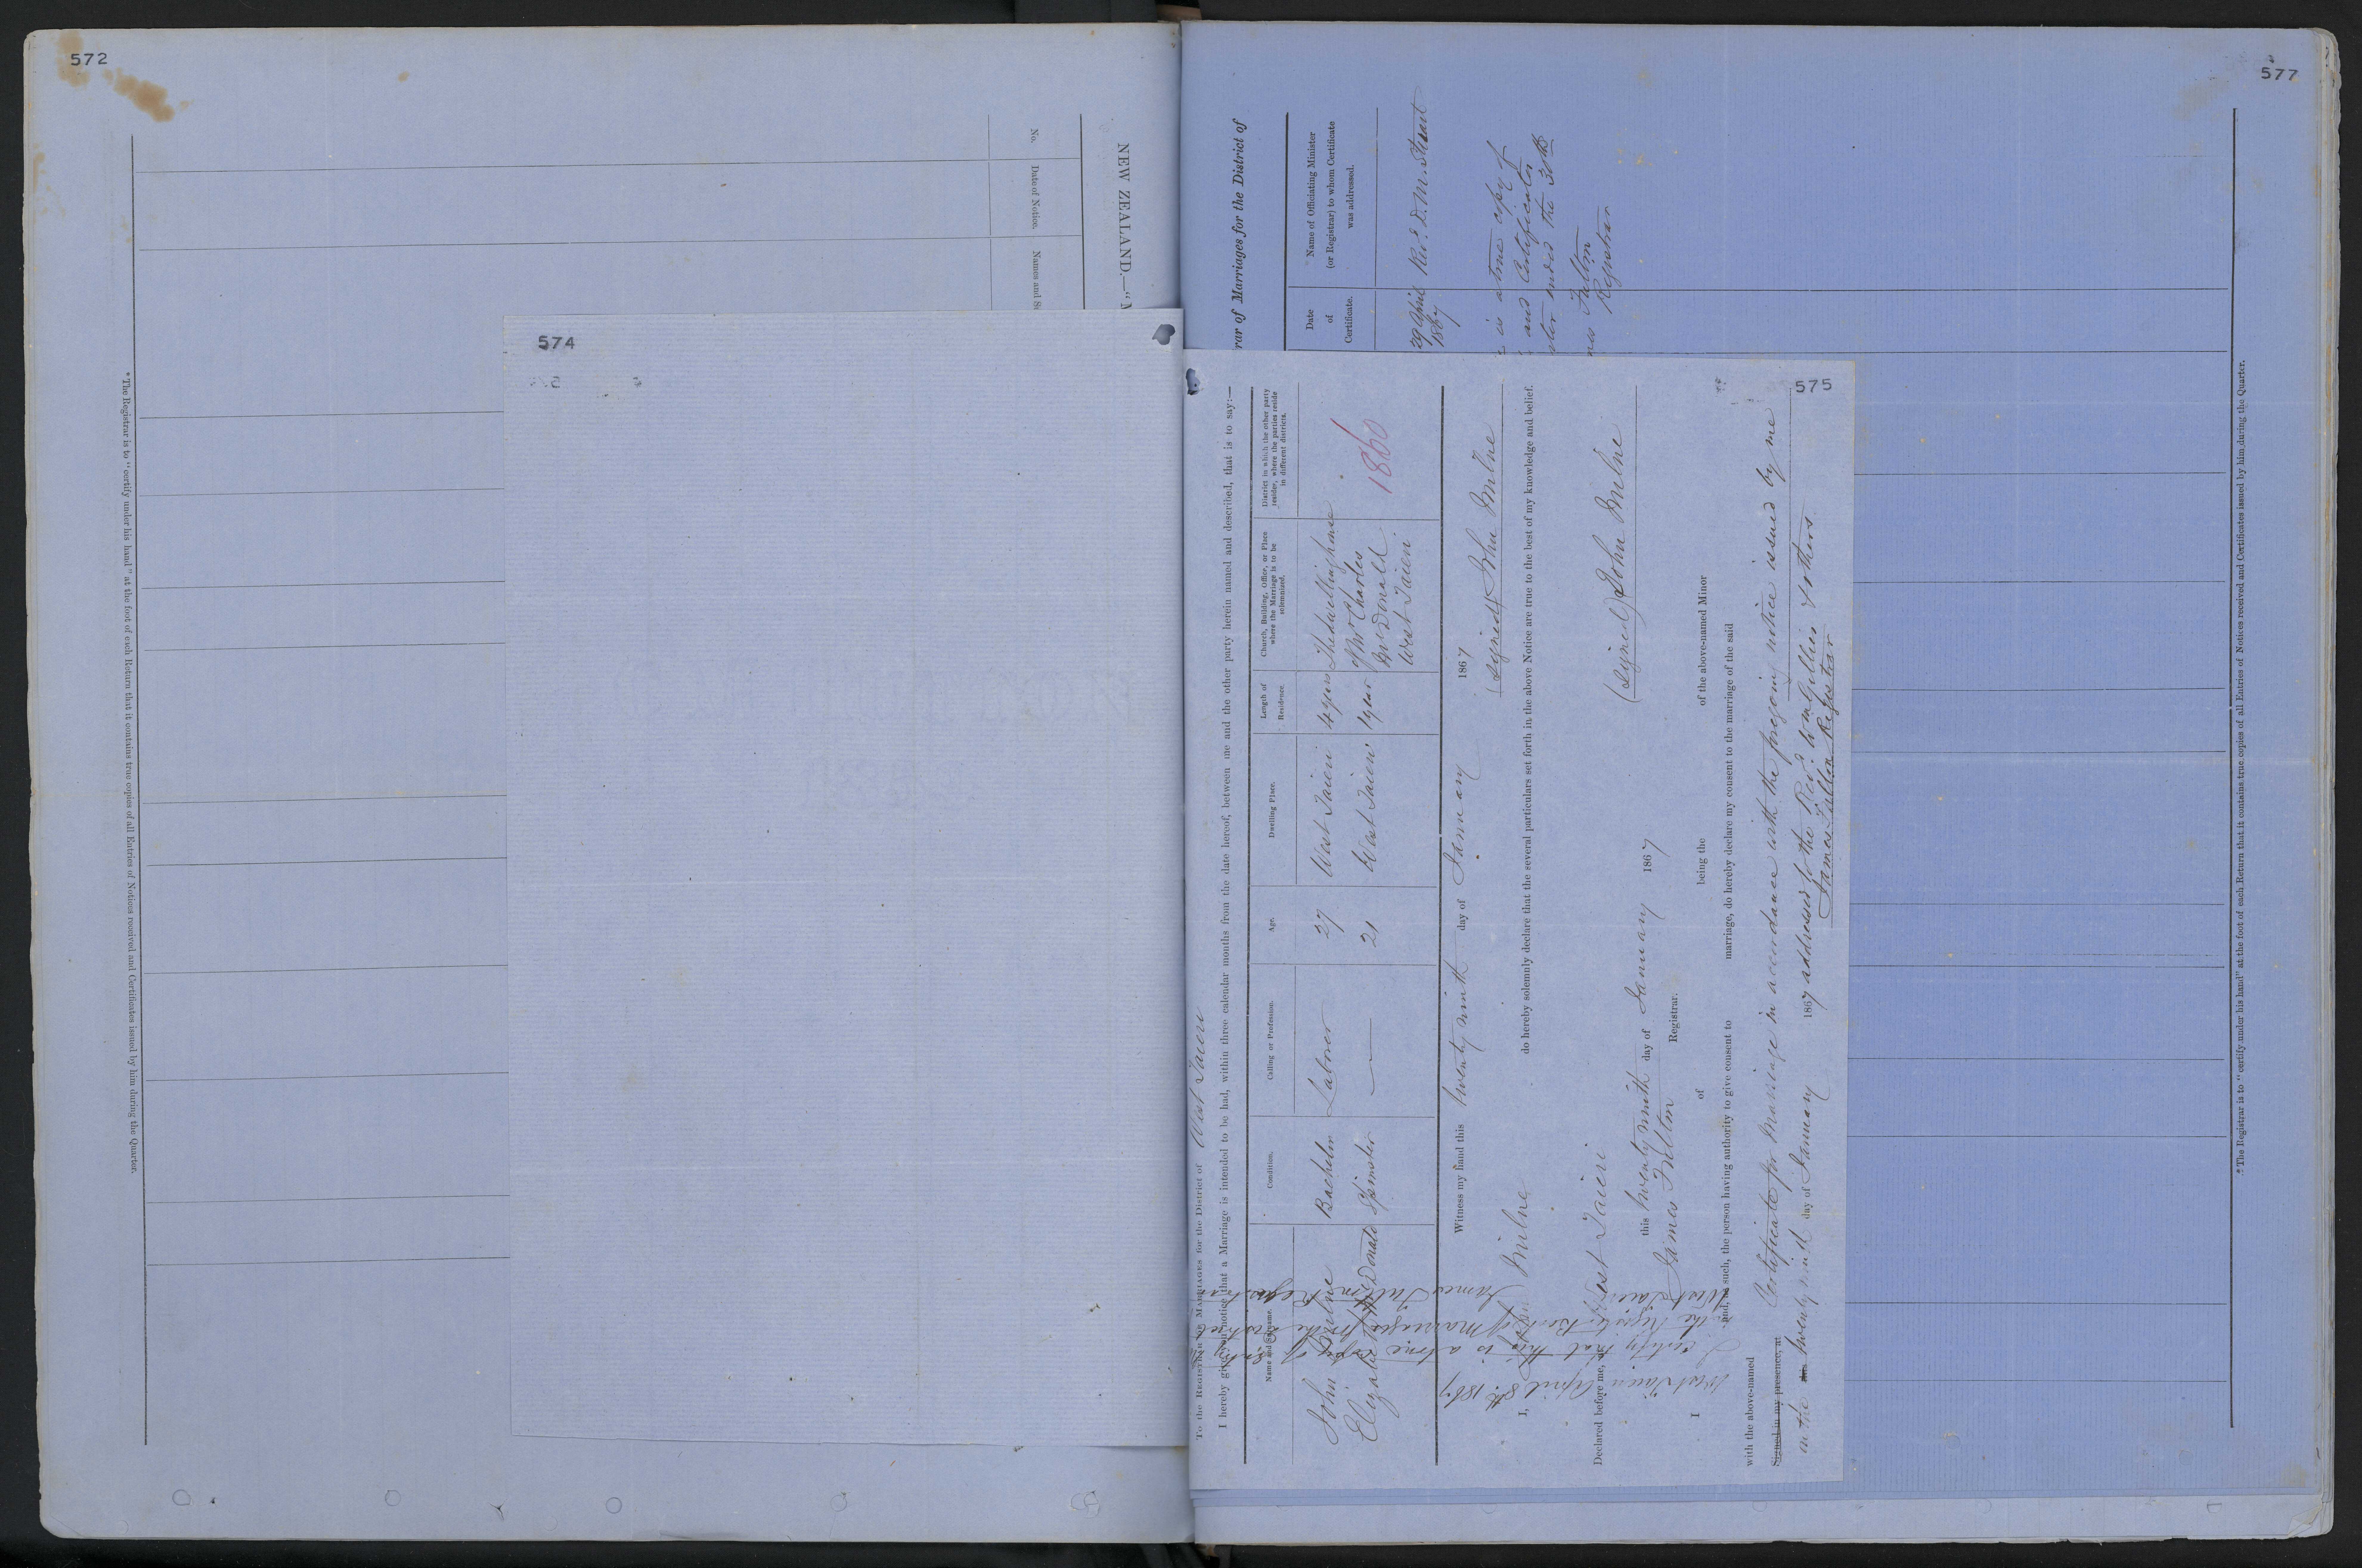 572
* The Registrar is to "certify under his hand" at the foot of each Return that it contains true copies of all Entries of Notices received and Certificates issued by him during the Quarter.
No.
Date of Notice.
Names and
NEW ZEALAND.—"
574
577
rar of Marriages for the District of
Date
of
Certificate.
Name of Officiating Minister
(or Registrar) to whom Certificate
was addressed.
29 April
1867
Revd. D. M. Stuart
is a true copy of
and Certificates
ended the 30th
Fulton
Registrar
* The Registrar is to "certify under his hand" at the foot of each Return that it contains true copies of all Entries of Notices received and Certificates issued by him during the Quarter.
575
To the REGISTRAR of MARRIAGES for the District of West Taieri
I hereby give you notice that a Marriage is intended to be had, within three calendar months from the date hereof, between me and the other party herein named and described, that is to say:—
Name and Surname.
Condition.
Calling or Profession.
Age.
Dwelling Place.
Length of
Residence.
Church, Building, Office, or Place
where the Marriage is to be
solemnized.
District in which the other party
resides, where the parties reside
in different districts.
John Milne Bachelor Labourer 27 West Taieri 4 years The dwelling house
Elizabeth McDonald Spinster — 21 West Taieri 1 year of Mr Charles
McDonald
West Taieri
1860
Witness my hand this twenty ninth day of January 1867
(signed) John Milne
I, John Milne do hereby solemnly declare that the several particulars set forth in the above Notice are true to the best of my knowledge and belief.
(signed) John Milne
Declared before me, at West Taieri
this twenty ninth day of January 1867
James Fulton Registrar.
I of being the of the above-named Minor
and, as such, the person having authority to give consent to marriage, do hereby declare my consent to the marriage of the said
with the above-named
Signed in my presence, at
Certificate for Marriage in accordance with the foregoing notice issued by me
on the twenty ninth day of January 1867 addressed to the Revd. Wm Gillies & others
James Fulton Registrar
West Taieri April 8th. 1867
I certify that this is a true copy of Entry
in the Register Book of Marriages for the district
West Taieri James Fulton Registrar